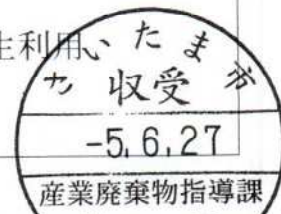 生利用
さいたま市
収受
-5.6.27
産業廃棄物指導課